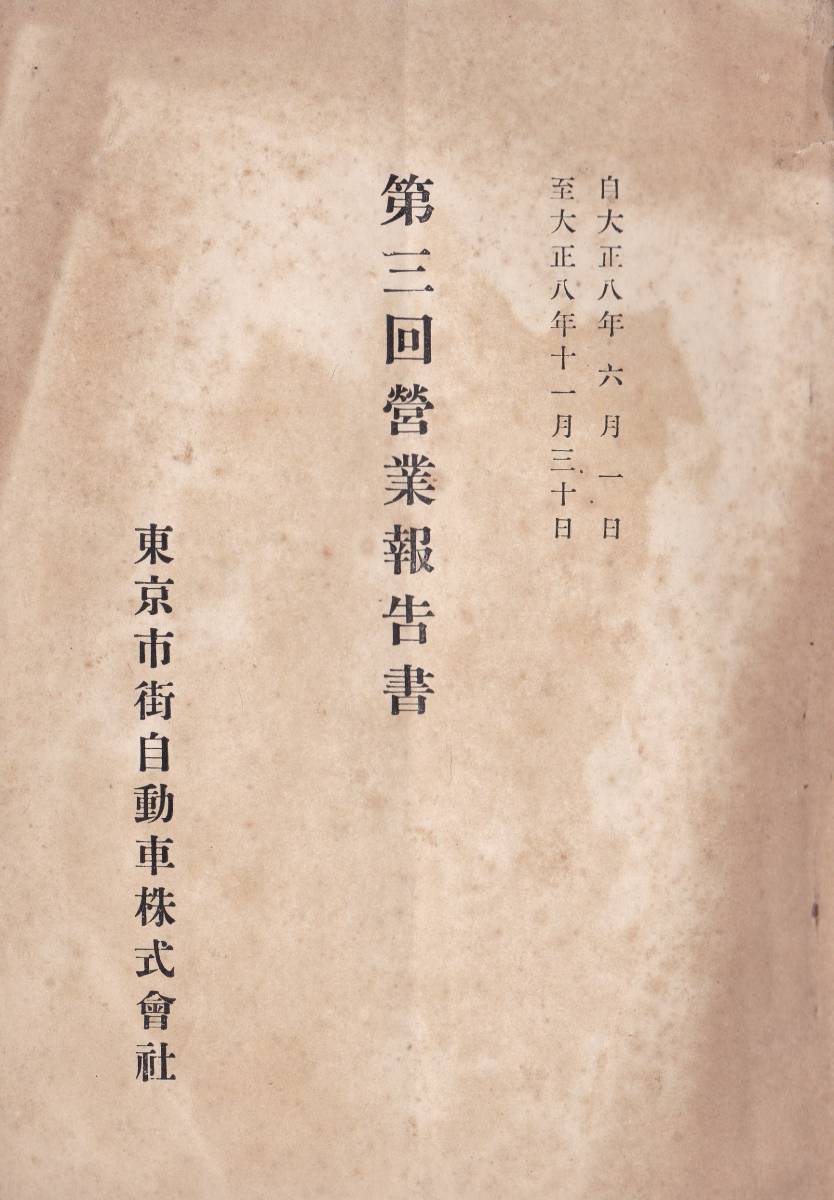 自大正八年六月一日
至大正八年十一月三十日
第三回營業報告書
東京市街自動車株式會社